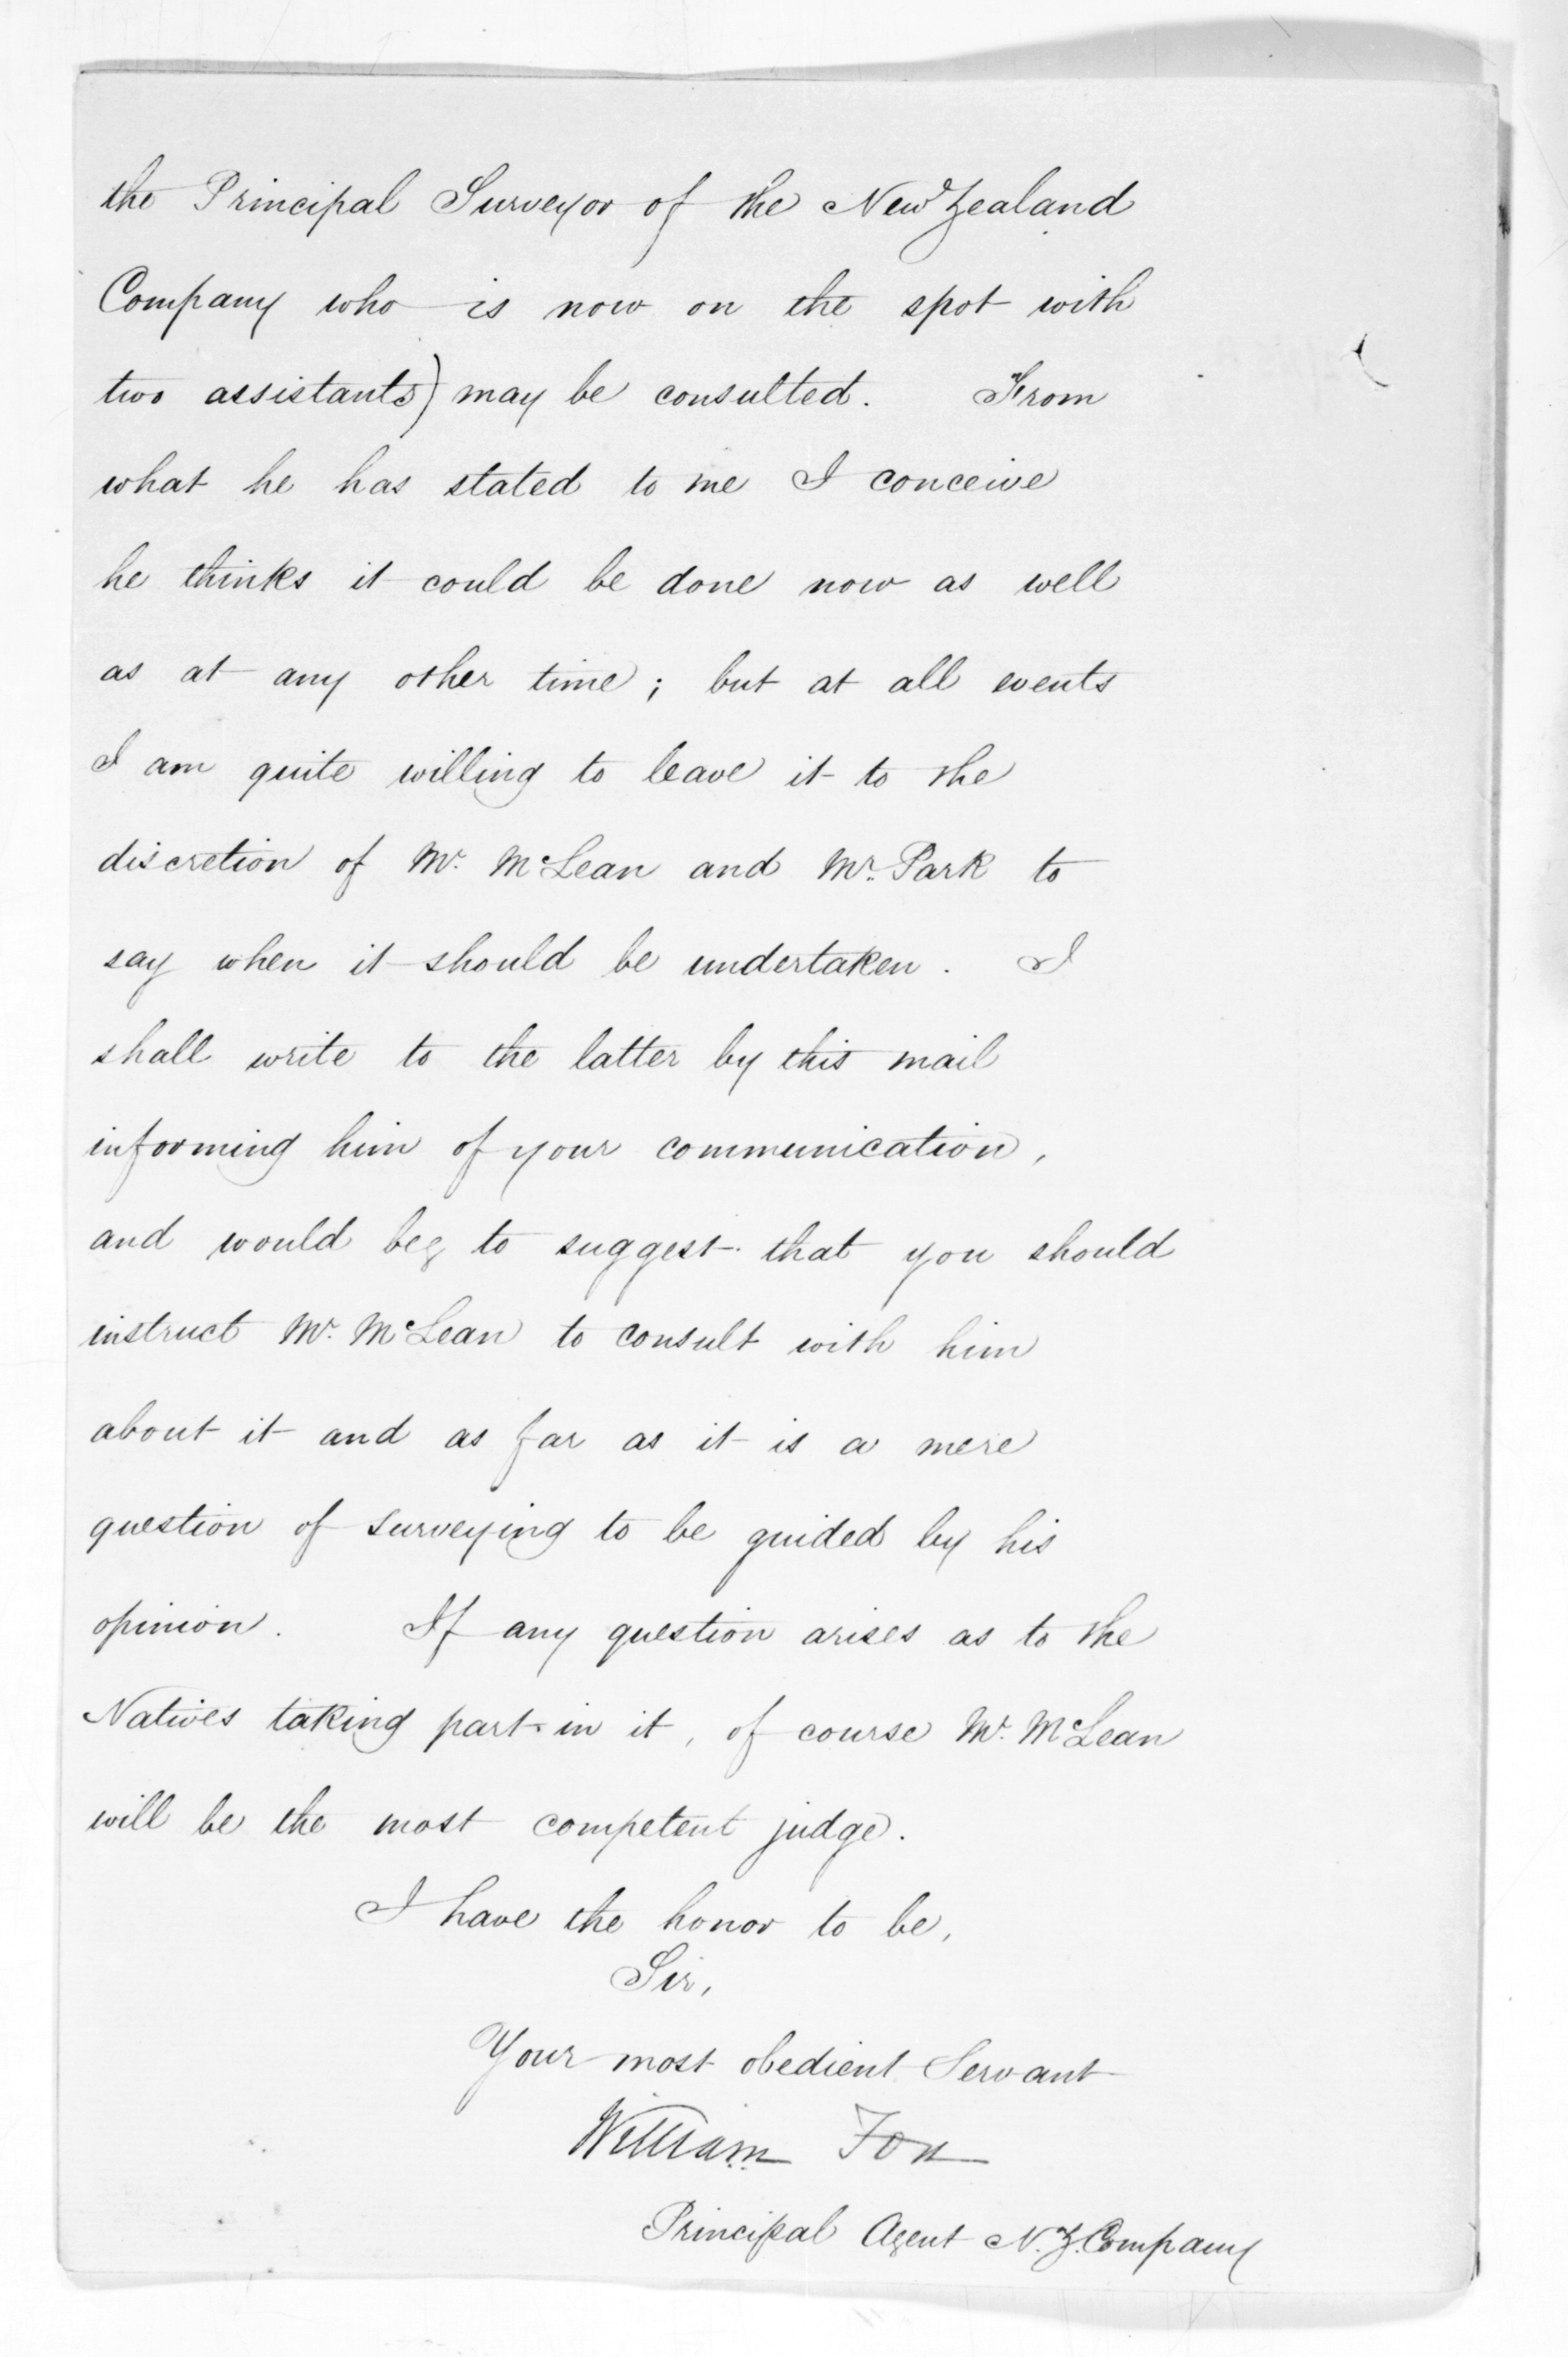 the Principal Surveyor of the New Zealand
Company who is now on the spot with
two assistants) may be consulted. From
what he has stated to me I conceive
he thinks it could be done now as well
as at any other time; but at all events
I am quite willing to leave it to the
discretion of Mr. McLean and Mr. Park to
say when it should be undertaken. I
shall write to the latter by this mail
informing him of your communication,
and would beg to suggest that you should
instruct Mr. McLean to consult with him
about it and as far as it is a mere
question of surveying to be guided by his
opinion. If any question arises as to the
Natives taking part in it, of course Mr. McLean
will be the most competent judge.
I have the honor to be,
Sir,
Your most obedient Servant
William Fox
Principal Agent N.Z. Company